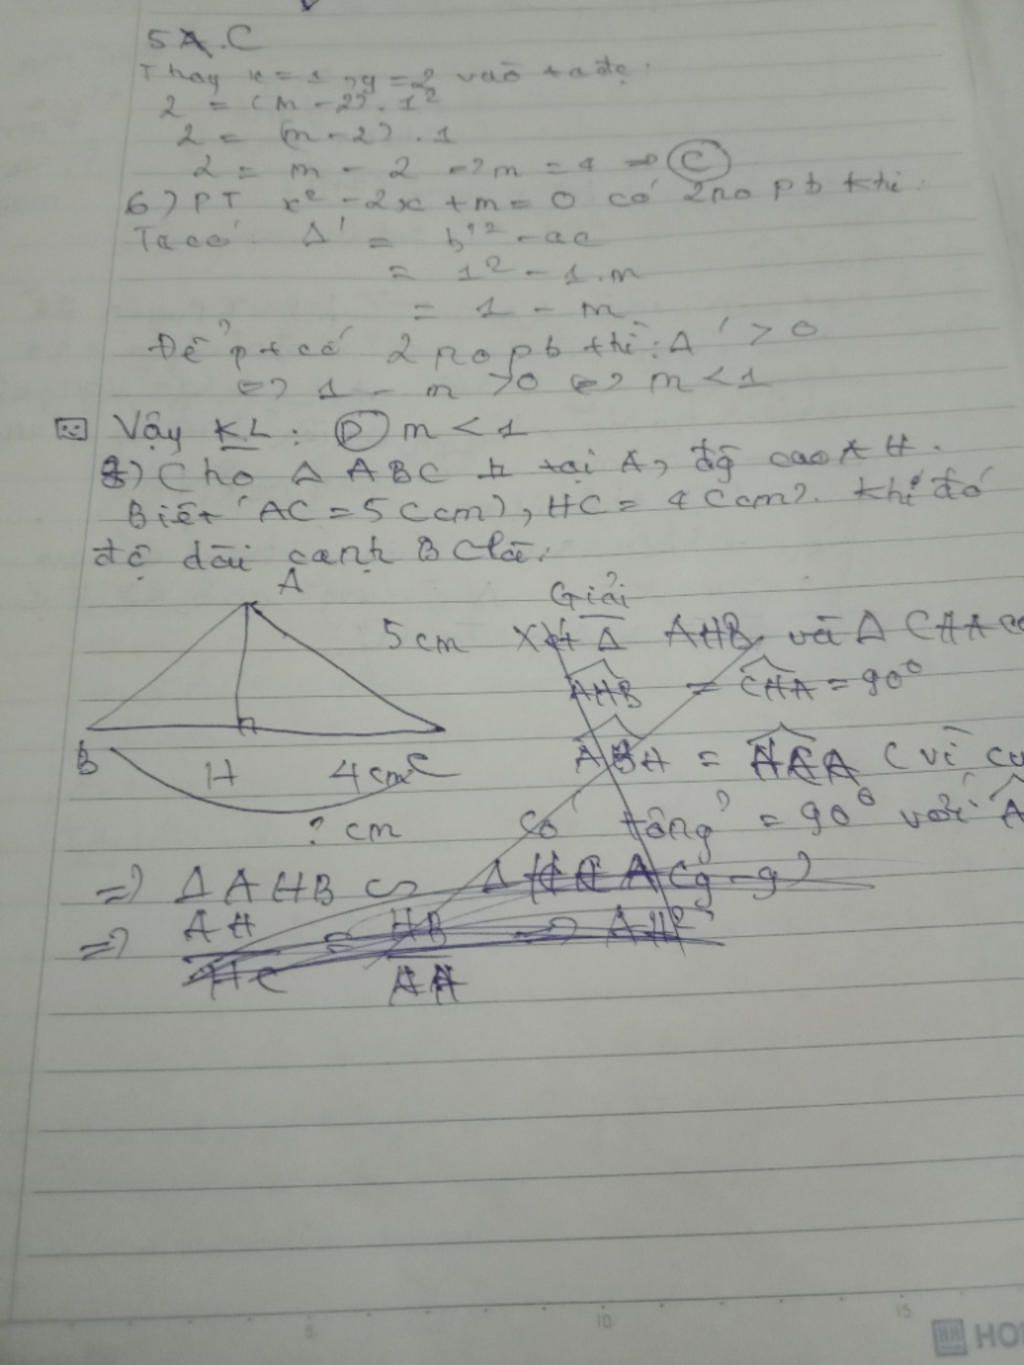 5A.C
Thay x = 1, y = 2 vào ta đc:
2 = (m - 2). 1²
2 = (m - 2) . 1
2 = m - 2 => m = 4 => C
6) PT x² - 2x + m = 0 có 2 no pb khi:
Ta có: Δ' = b'² - ac
= 1² - 1.m
= 1 - m
Để pt có 2 no pb thì: Δ' > 0
<=> 1 - m > 0 <=> m < 1
Vậy KL: D m < 1
8) Cho Δ ABC ⊥ tại A, độ cao AH.
Biết AC = 5 (cm), HC = 4 (cm). Khi đó
độ dài cạnh BC là:
A
Giải
5 cm
Xét Δ AHB và Δ CHA có
AHB = CHA = 90°
ABH = HCA (vì cù
B
H
4 cm C
? cm
có tổng = 90° với A
=> Δ AHB ∽ Δ HCA (g-g)
=> AH/HC = HB/AH => AH²
5 10 15
HO